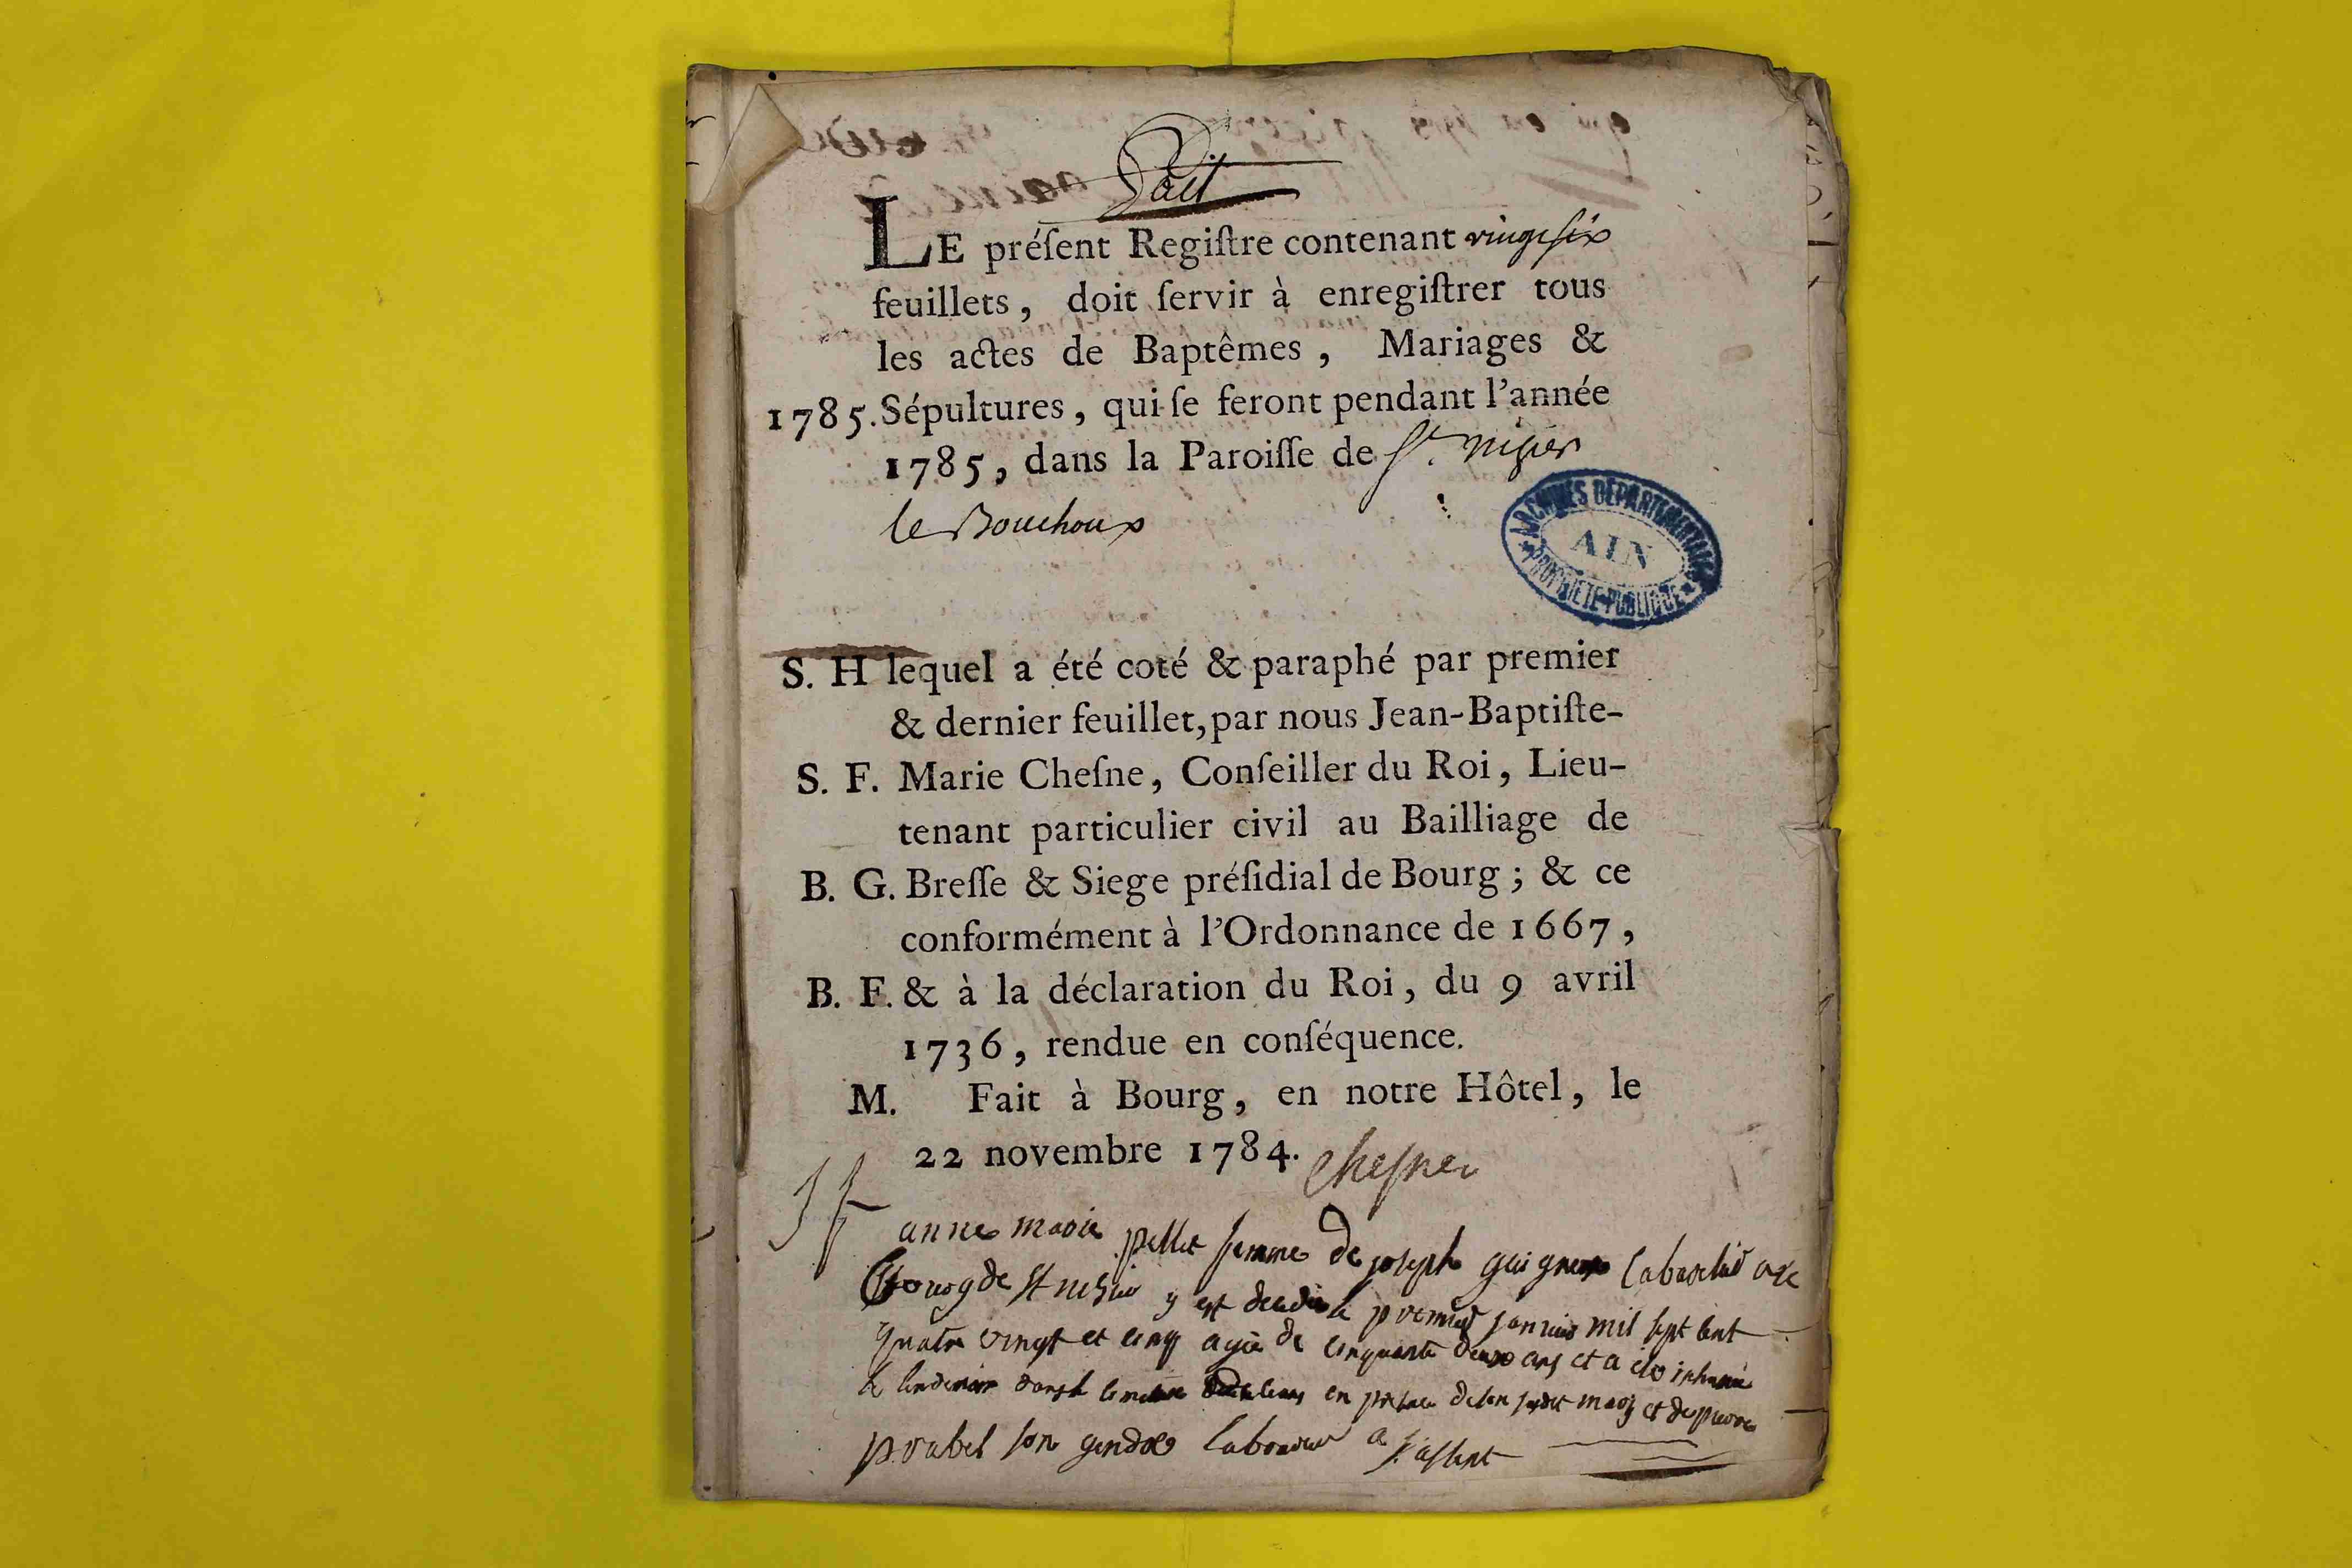 Fait
LE préſent Regiſtre contenant vingt ſix
feuillets, doit ſervir à enregiſtrer tous
les actes de Baptêmes, Mariages &
1785. Sépultures, qui ſe feront pendant l'année
1785, dans la Paroiſſe de St. nizier
le Bouchoux
ARCHIVES DÉPARTEMENTALES
AIN
PROPRIÉTÉ PUBLIQUE
S. H lequel a été coté & paraphé par premier
& dernier feuillet, par nous Jean-Baptiſte-
S. F. Marie Cheſne, Conſeiller du Roi, Lieu-
tenant particulier civil au Bailliage de
B. G. Breſſe & Siege préſidial de Bourg; & ce
conformément à l'Ordonnance de 1667,
B. F. & à la déclaration du Roi, du 9 avril
1736, rendue en conſéquence.
M. Fait à Bourg, en notre Hôtel, le
22 novembre 1784. Cheſne
anne marie pellet femme de joseph
bourg de St nizier y est le premier janvier mil sept cent
quatre vingt et cinq agée de cinquante deux ans et a été inhumée
le lendemain en de son mary et de pierre
prabel son gendre laboureur a